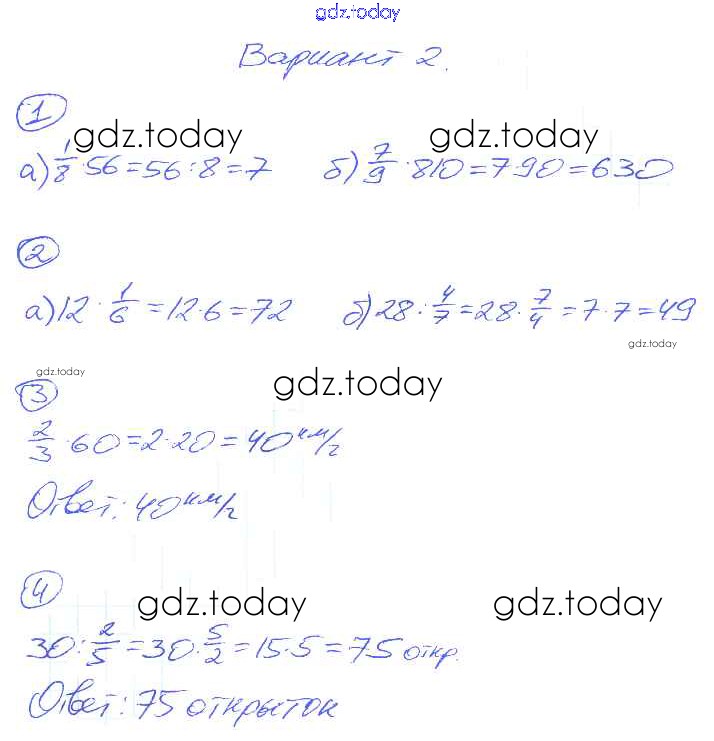 gdz.today
Вариант 2.
1
gdz.today gdz.today
а) 1/8 · 56 = 56 : 8 = 7 б) 7/9 · 810 = 7·90 = 630
2
а) 12 : 1/6 = 12·6 = 72 б) 28 : 4/7 = 28 · 7/4 = 7·7 = 49
gdz.today
gdz.today
3 gdz.today
2/3 · 60 = 2·20 = 40 км/г
Ответ: 40 км/г
4
gdz.today gdz.today
30 : 2/5 = 30 · 5/2 = 15·5 = 75 откр.
Ответ: 75 открыток